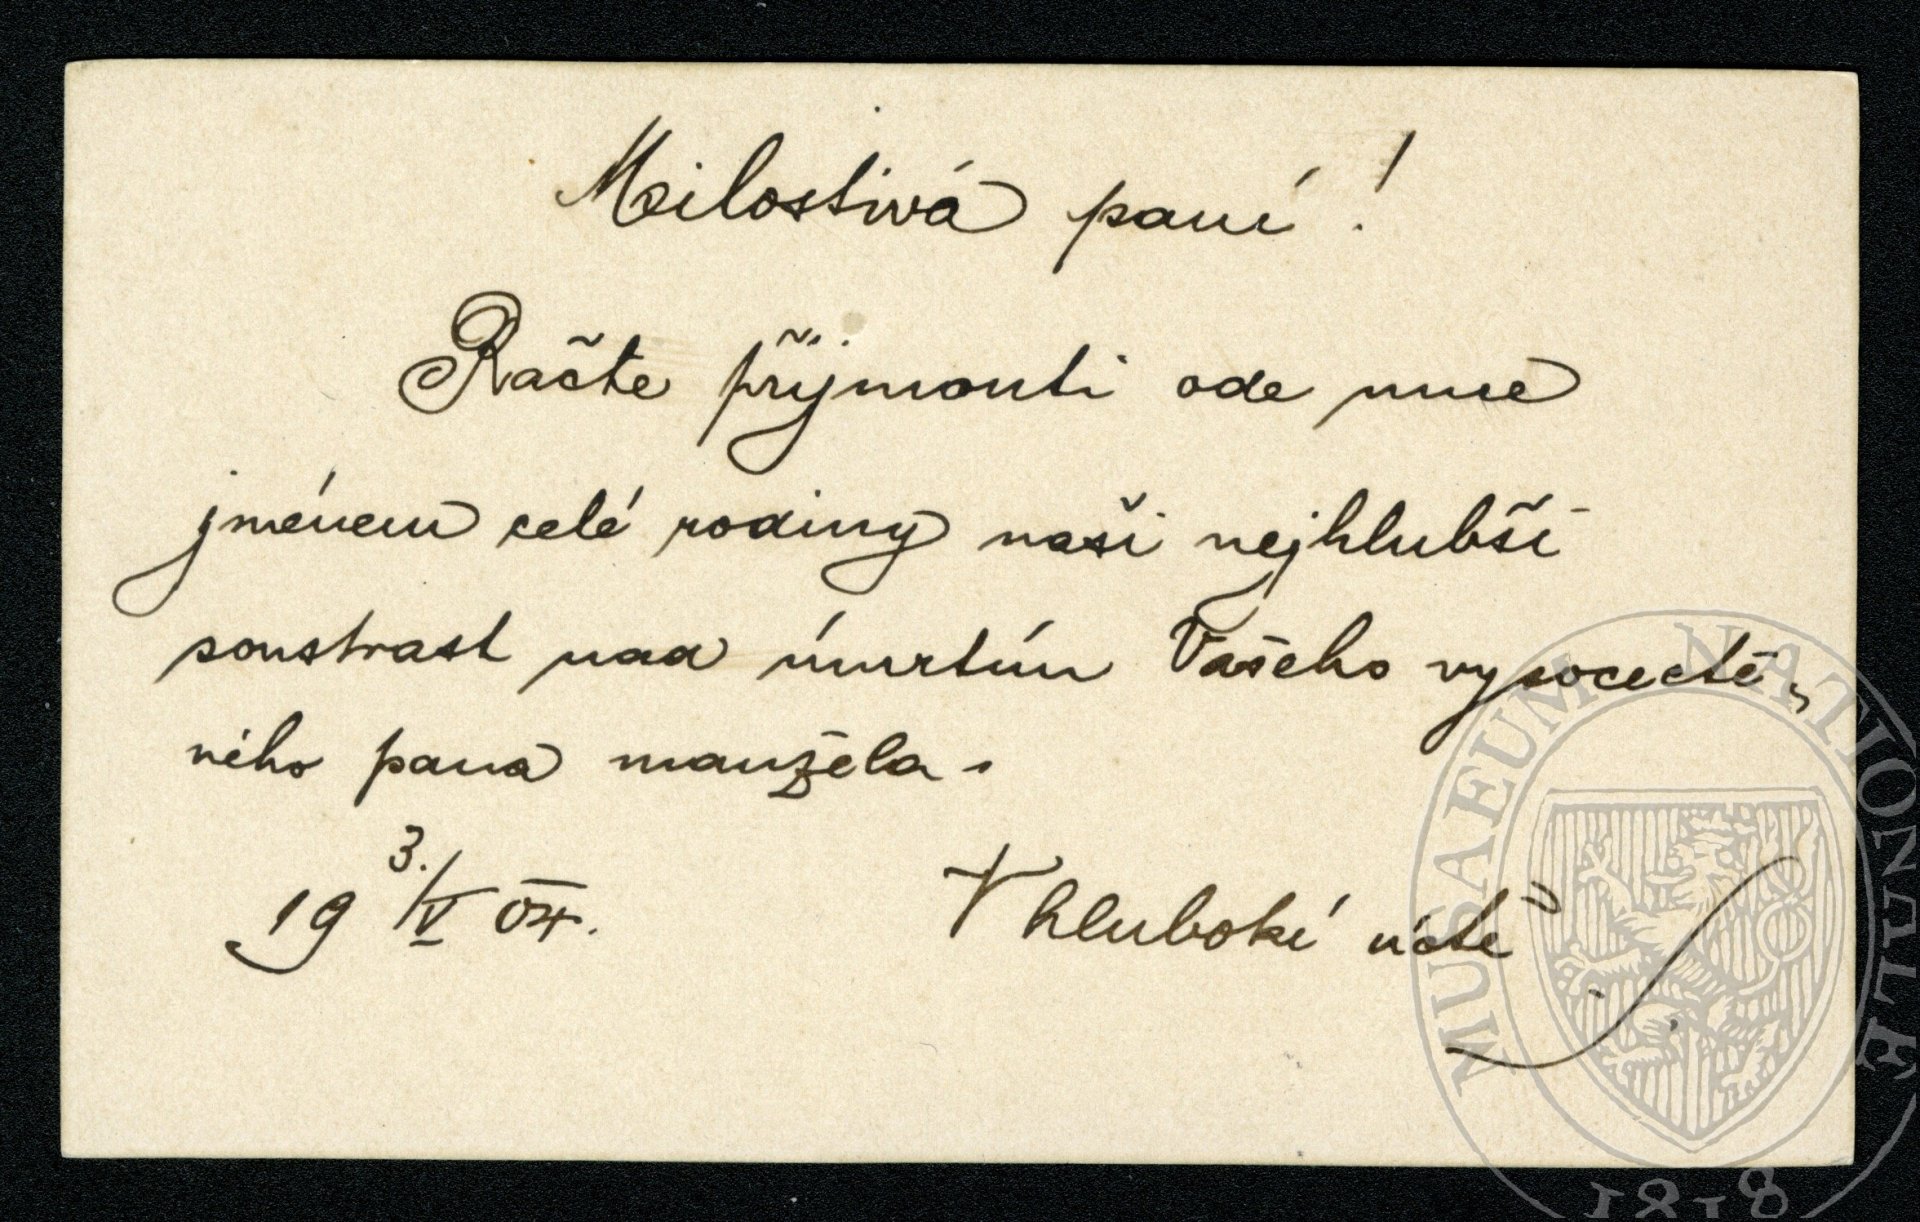 Milostivá paní!
Račte přijmouti ode mne
jménem celé rodiny naší nejhlubší
soustrast nad úmrtím Vašeho vysocectě-
ného pana manžela.
19 3./V 04.
V hluboké úctě
MUSAEUM NATIONALE
1818